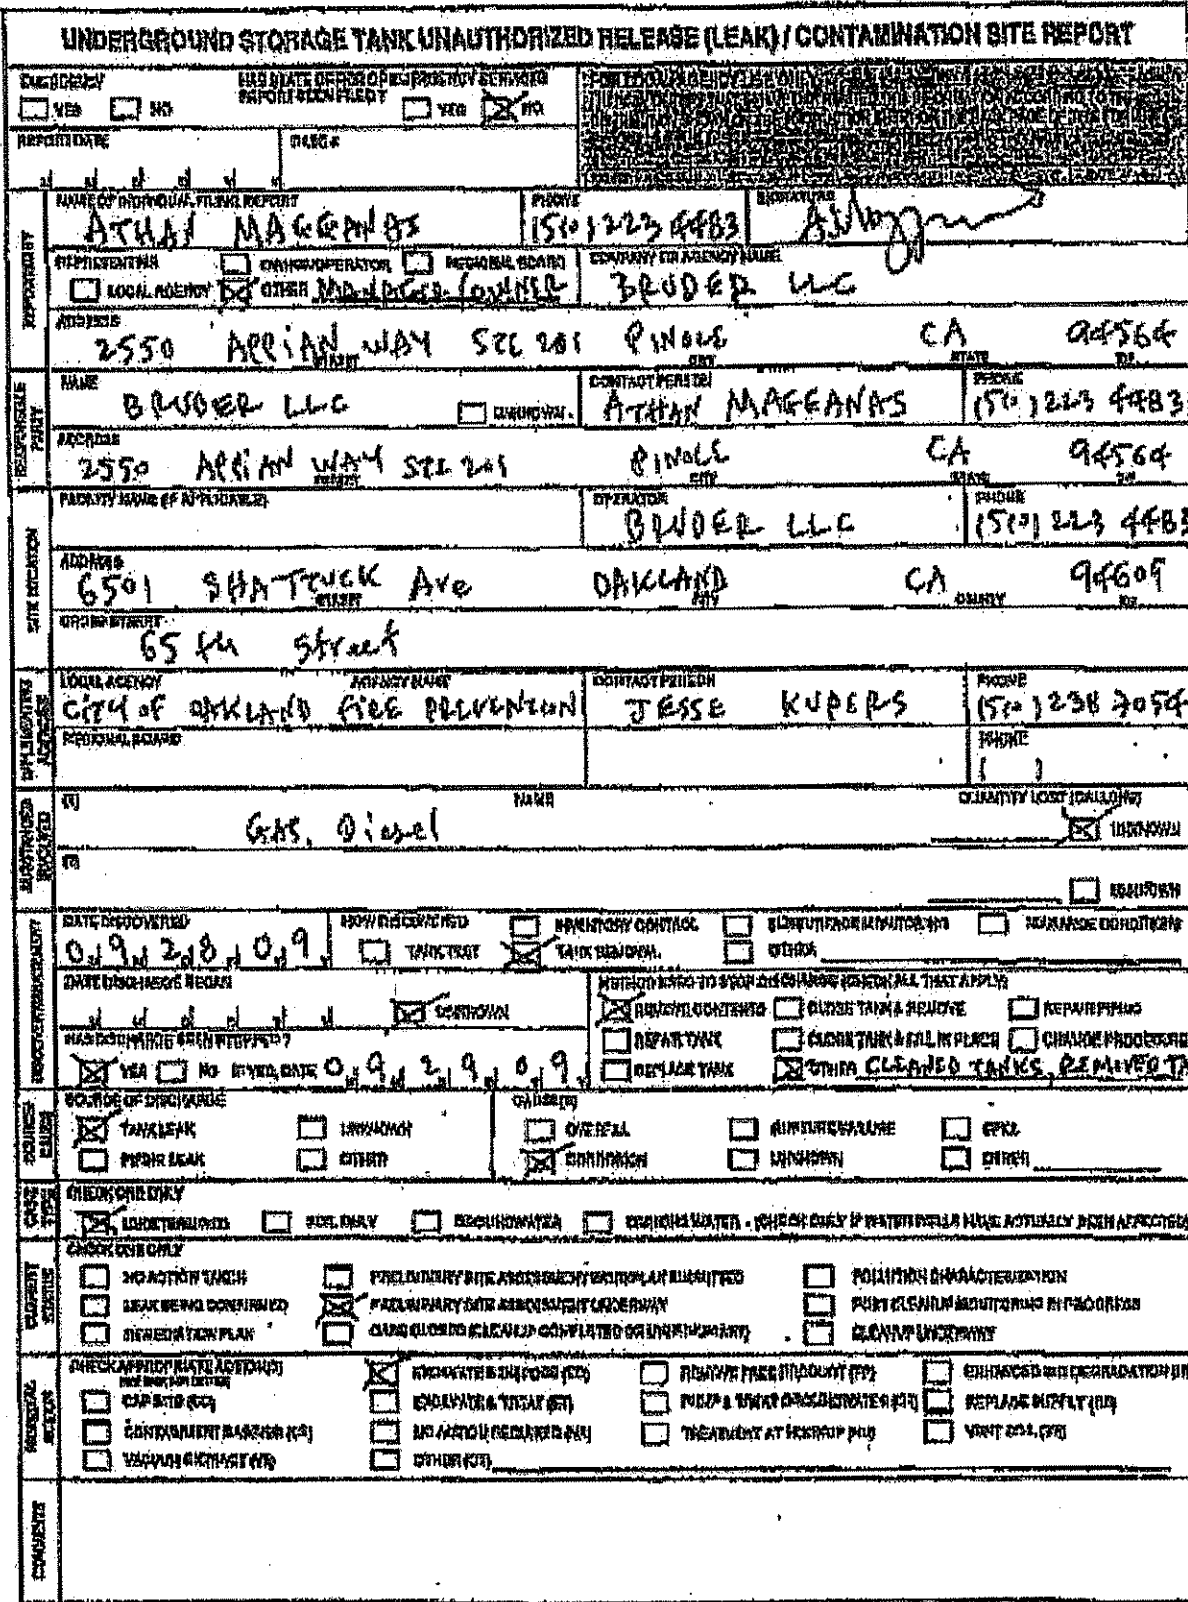 UNDERGROUND STORAGE TANK UNAUTHORIZED RELEASE (LEAK) / CONTAMINATION SITE REPORT
EMERGENCY
YES NO
HAS STATE OFFICE OF EMERGENCY SERVICES
REPORT BEEN FILED?
YES NO
REPORT DATE
CASE #
NAME OF INDIVIDUAL FILING REPORT
ATHAN MAGGANAS
PHONE
(510) 223 4483
SIGNATURE
REPRESENTING
OWNER/OPERATOR
REGIONAL BOARD
LOCAL AGENCY
OTHER MANAGER/OWNER
COMPANY OR AGENCY NAME
BRUDER LLC
ADDRESS
2550 APPIAN WAY STE 201 PINOLE CA 94564
STREET CITY STATE ZIP
RESPONSIBLE PARTY
NAME
BRUDER LLC
UNKNOWN
CONTACT PERSON
ATHAN MAGGANAS
PHONE
(510) 223 4483
ADDRESS
2550 APPIAN WAY STE 201 PINOLE CA 94564
STREET CITY STATE ZIP
SITE LOCATION
FACILITY NAME (IF APPLICABLE)
OPERATOR
BRUDER LLC
PHONE
(510) 223 4483
ADDRESS
6501 SHATTUCK Ave OAKLAND CA 94609
STREET CITY COUNTY ZIP
CROSS STREET
65 th Street
IMPLEMENTING AGENCIES
LOCAL AGENCY AGENCY NAME
CITY OF OAKLAND FIRE PREVENTION
CONTACT PERSON
JESSE KUPERS
PHONE
(510) 238 7054
REGIONAL BOARD
PHONE
( )
SUBSTANCES INVOLVED
(1) NAME
GAS, Diesel
QUANTITY LOST (GALLONS)
UNKNOWN
(2)
UNKNOWN
DATE DISCOVERED
0 9 2 8 0 9
HOW DISCOVERED
INVENTORY CONTROL
SUBSURFACE MONITORING
NUISANCE CONDITIONS
TANK TEST
TANK REMOVAL
OTHER
DATE DISCHARGE BEGAN
UNKNOWN
METHOD USED TO STOP DISCHARGE (CHECK ALL THAT APPLY)
REMOVE CONTENTS
CLOSE TANK & REMOVE
REPAIR PIPING
REPAIR TANK
CLOSE TANK & FILL IN PLACE
CHANGE PROCEDURE
REPLACE TANK
OTHER CLEANED TANKS, REMOVED TA
HAS DISCHARGE BEEN STOPPED?
YES NO IF YES, DATE 0 9 2 9 0 9
SOURCE/CAUSE
SOURCE OF DISCHARGE
TANK LEAK
UNKNOWN
PIPING LEAK
OTHER
CAUSE(S)
OVERFILL
RUPTURE/FAILURE
SPILL
CORROSION
UNKNOWN
OTHER
CASE TYPE
CHECK ONE ONLY
UNDETERMINED
SOIL ONLY
GROUNDWATER
DRINKING WATER - (CHECK ONLY IF WATER WELLS HAVE ACTUALLY BEEN AFFECTED)
CURRENT STATUS
CHECK ONE ONLY
NO ACTION TAKEN
PRELIMINARY SITE ASSESSMENT WORKPLAN SUBMITTED
POLLUTION CHARACTERIZATION
LEAK BEING CONFIRMED
PRELIMINARY SITE ASSESSMENT UNDERWAY
POST CLEANUP MONITORING IN PROGRESS
REMEDIATION PLAN
CASE CLOSED (CLEANUP COMPLETED OR UNNECESSARY)
CLEANUP UNDERWAY
REMEDIAL ACTION
CHECK APPROPRIATE ACTION(S)
EXCAVATE & DISPOSE (ED)
REMOVE FREE PRODUCT (FP)
ENHANCED BIO DEGRADATION
CAP SITE (CD)
EXCAVATE & TREAT (ET)
PUMP & TREAT GROUNDWATER (GT)
REPLACE SUPPLY (RS)
CONTAINMENT BARRIER (CB)
NO ACTION REQUIRED (NA)
TREATMENT AT HOOKUP (HU)
VENT SOIL (VS)
VACUUM EXTRACT (VE)
OTHER (OT)
COMMENTS